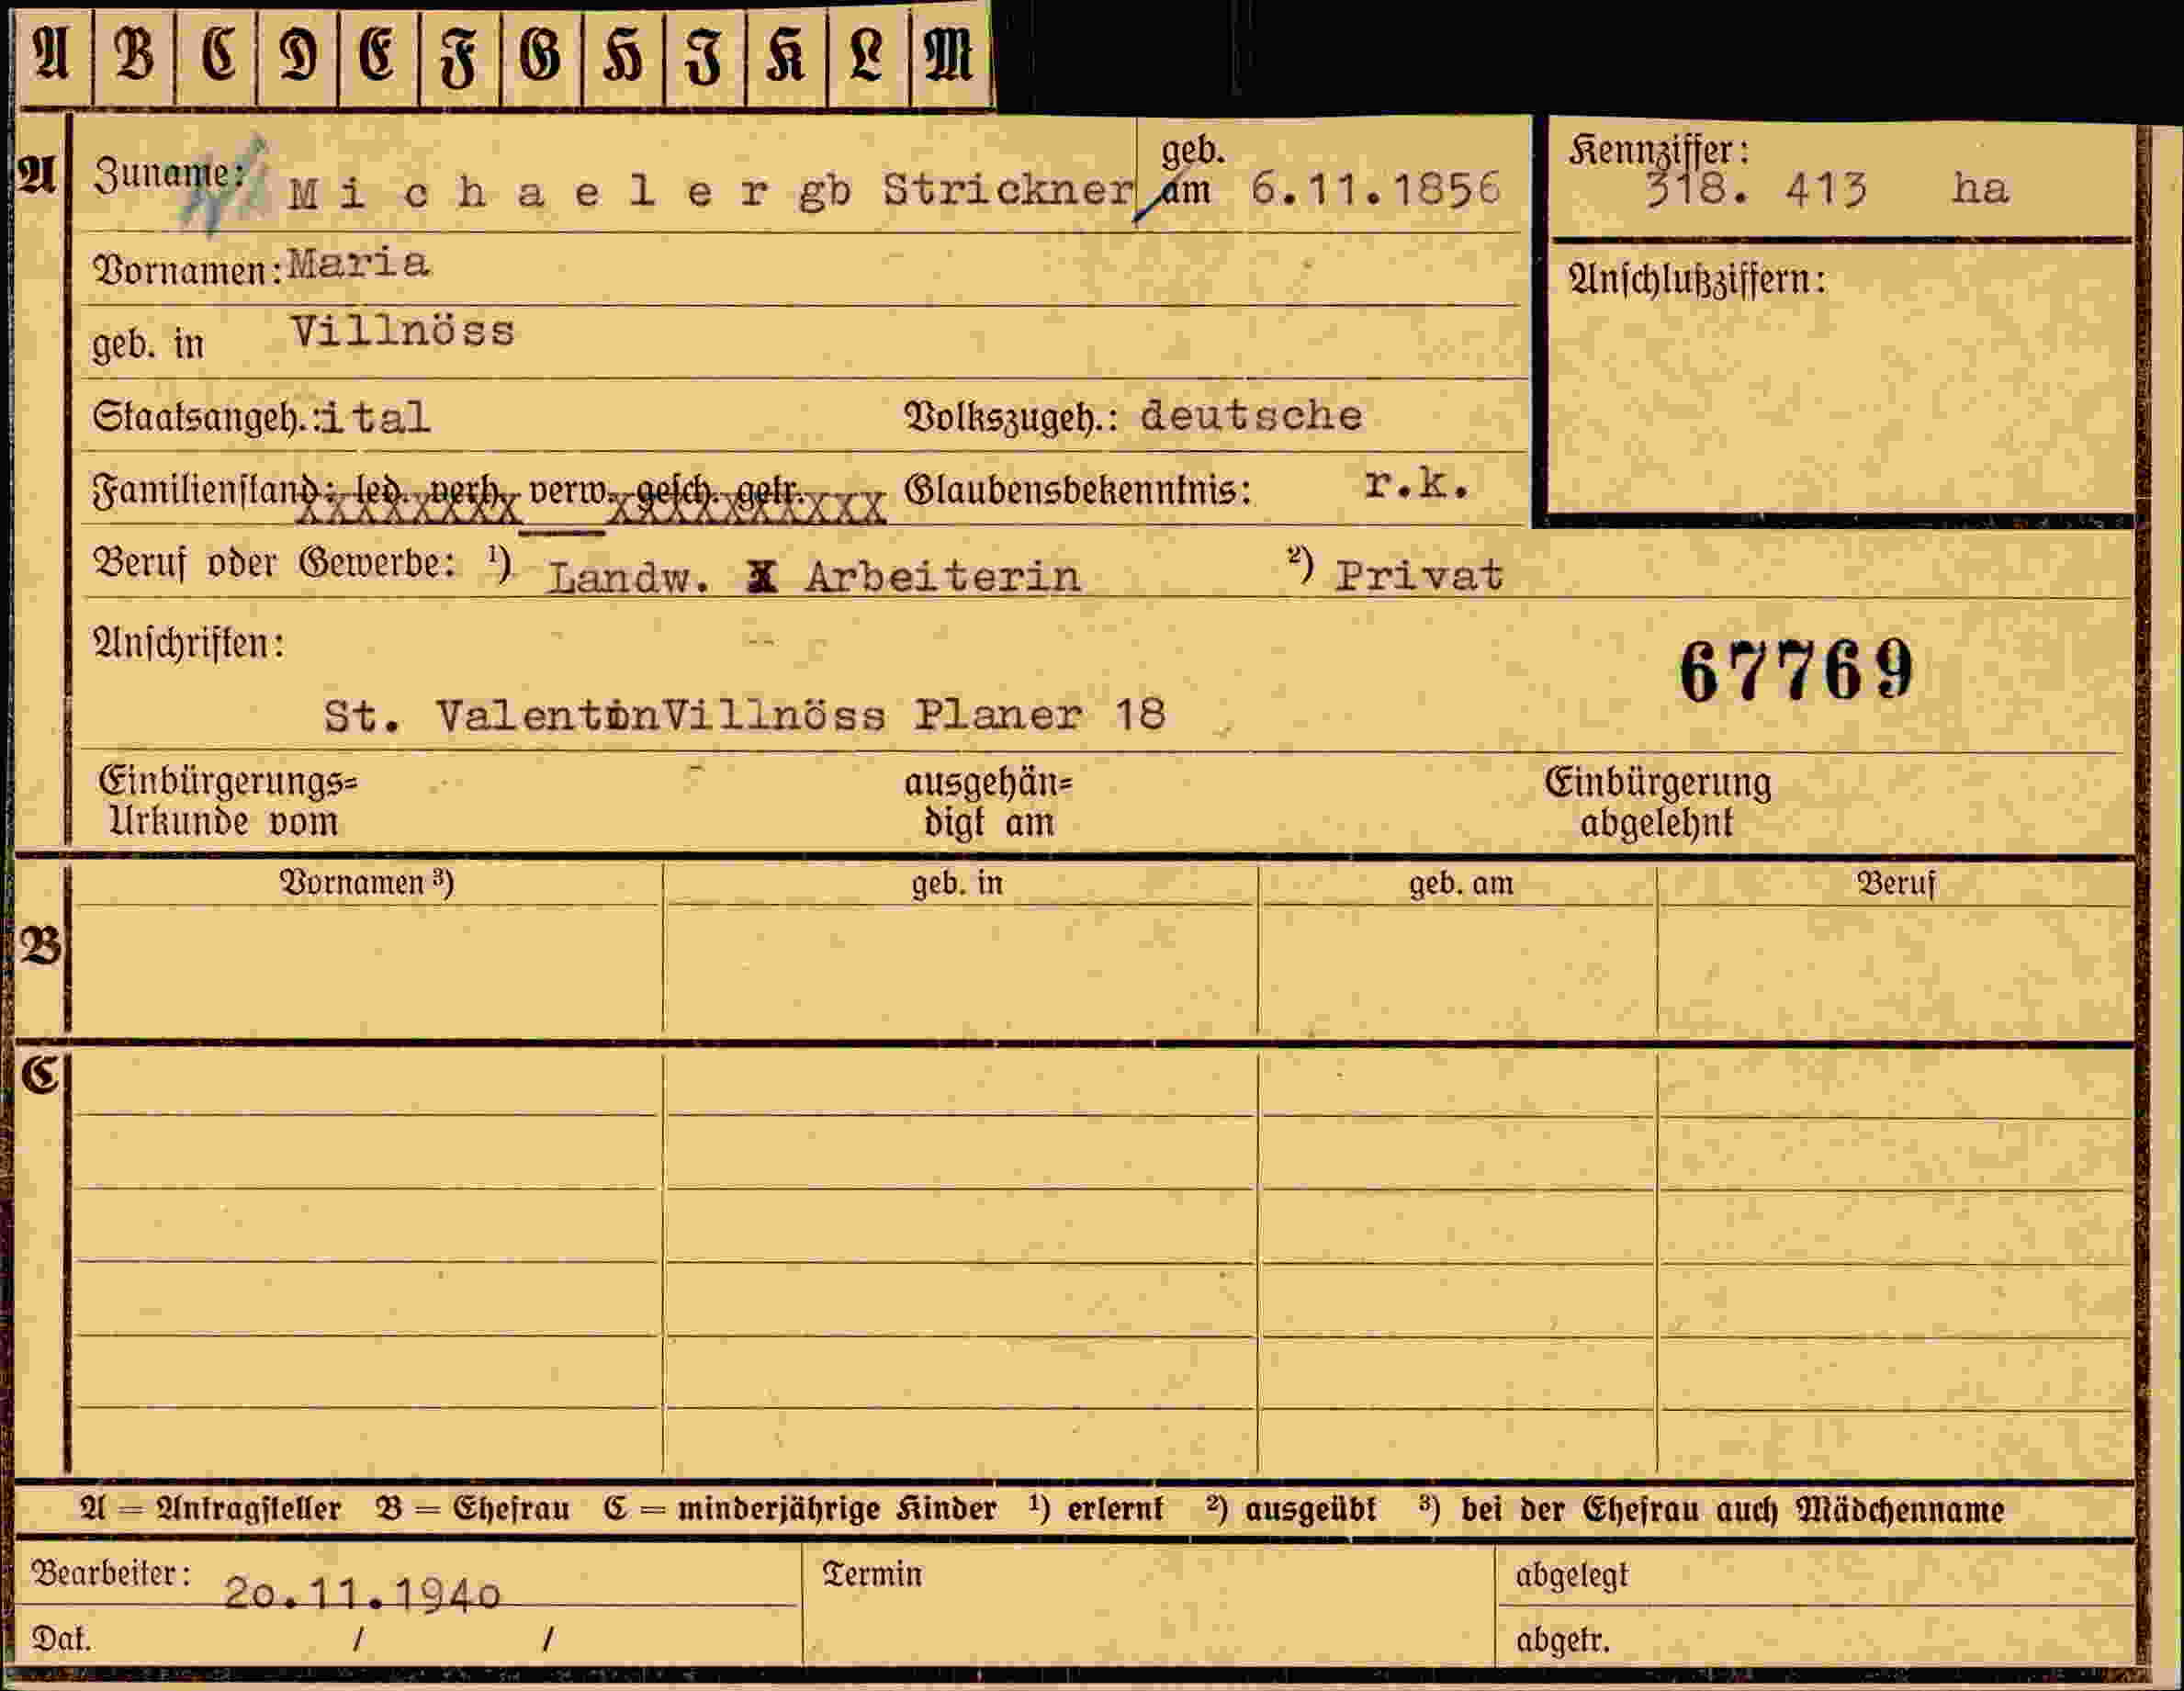 A B C D E F G H I K L M
A Zuname: M i c h a e l e r gb Strickner geb. am 6.11.1856
Kennziffer: 318. 413 ha
Vornamen: Maria
Anschlußziffern:
geb. in Villnöss
Staatsangeh.: ital Volkszugeh.: deutsche
Familienstand: led. verh. verw. gesch. getr. Glaubensbekenntnis: r.k.
Beruf oder Gewerbe: ¹) Landw. Arbeiterin ²) Privat
Anschriften:
67769
St. Valentin Villnöss Planer 18
Einbürgerungs= ausgehän= Einbürgerung
Urkunde vom digt am abgelehnt
Vornamen ³) geb. in geb. am Beruf
B
C
A = Antragsteller B = Ehefrau C = minderjährige Kinder ¹) erlernt ²) ausgeübt ³) bei der Ehefrau auch Mädchenname
Bearbeiter: 20.11.1940 Termin abgelegt
Dat. / / abgetr.